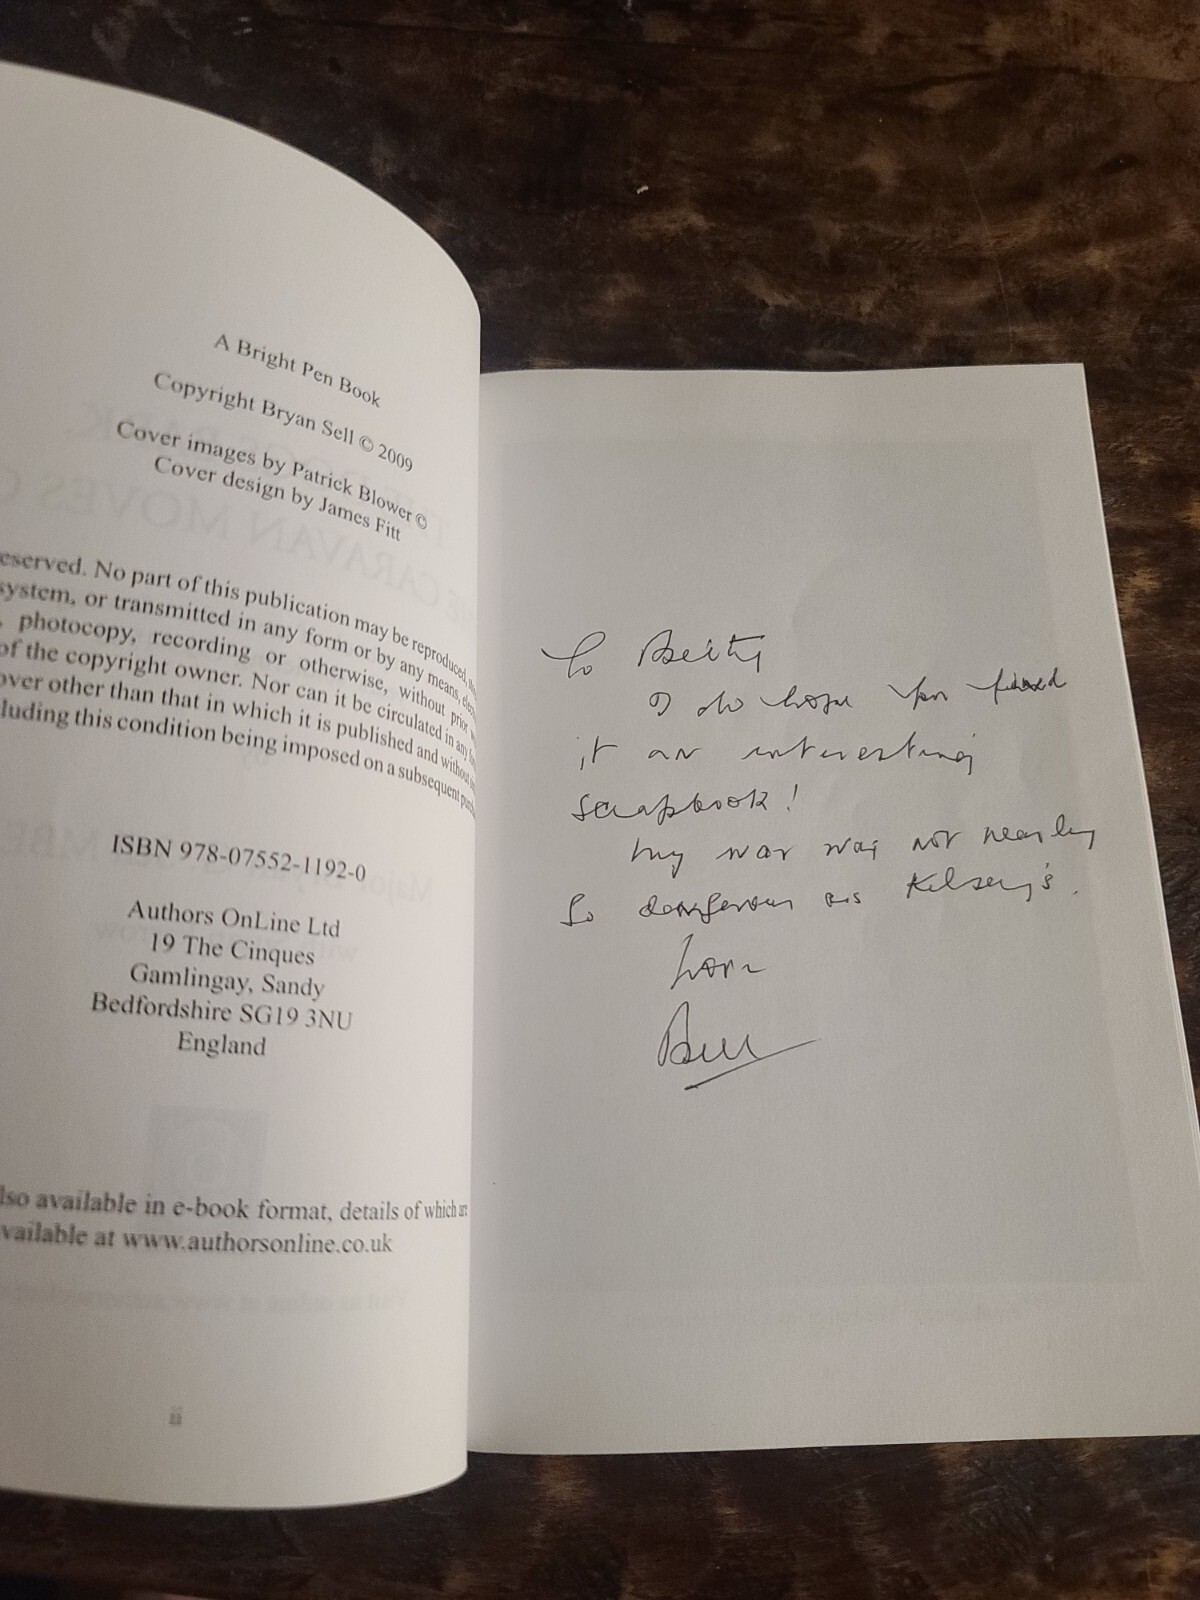 A Bright Pen Book
Copyright Bryan Sell © 2009
Cover images by Patrick Blower ©
Cover design by James Fitt
eserved. No part of this publication may be reproduced,
system, or transmitted in any form or by any means,
, photocopy, recording or otherwise, without prior
of the copyright owner. Nor can it be circulated in any
over other than that in which it is published and without
luding this condition being imposed on a subsequent
ISBN 978-07552-1192-0
Authors OnLine Ltd
19 The Cinques
Gamlingay, Sandy
Bedfordshire SG19 3NU
England
lso available in e-book format, details of which are
vailable at www.authorsonline.co.uk
ii
To Betty
I do hope you find
it an interesting
scrapbook!
My war was not nearly
so dangerous as Kelsey's.
Love